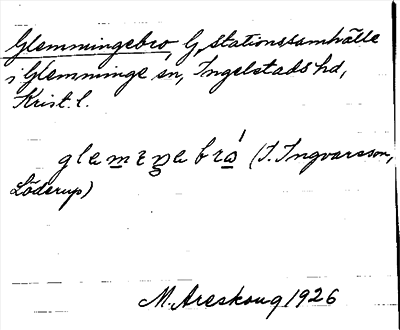 Glemmingebro, G, stationssamhälle
i Glemminge sn, Ingelstads hd,
Krist. l.
(I. Ingvarsson,
Löderup)
M. Areskoug 1926